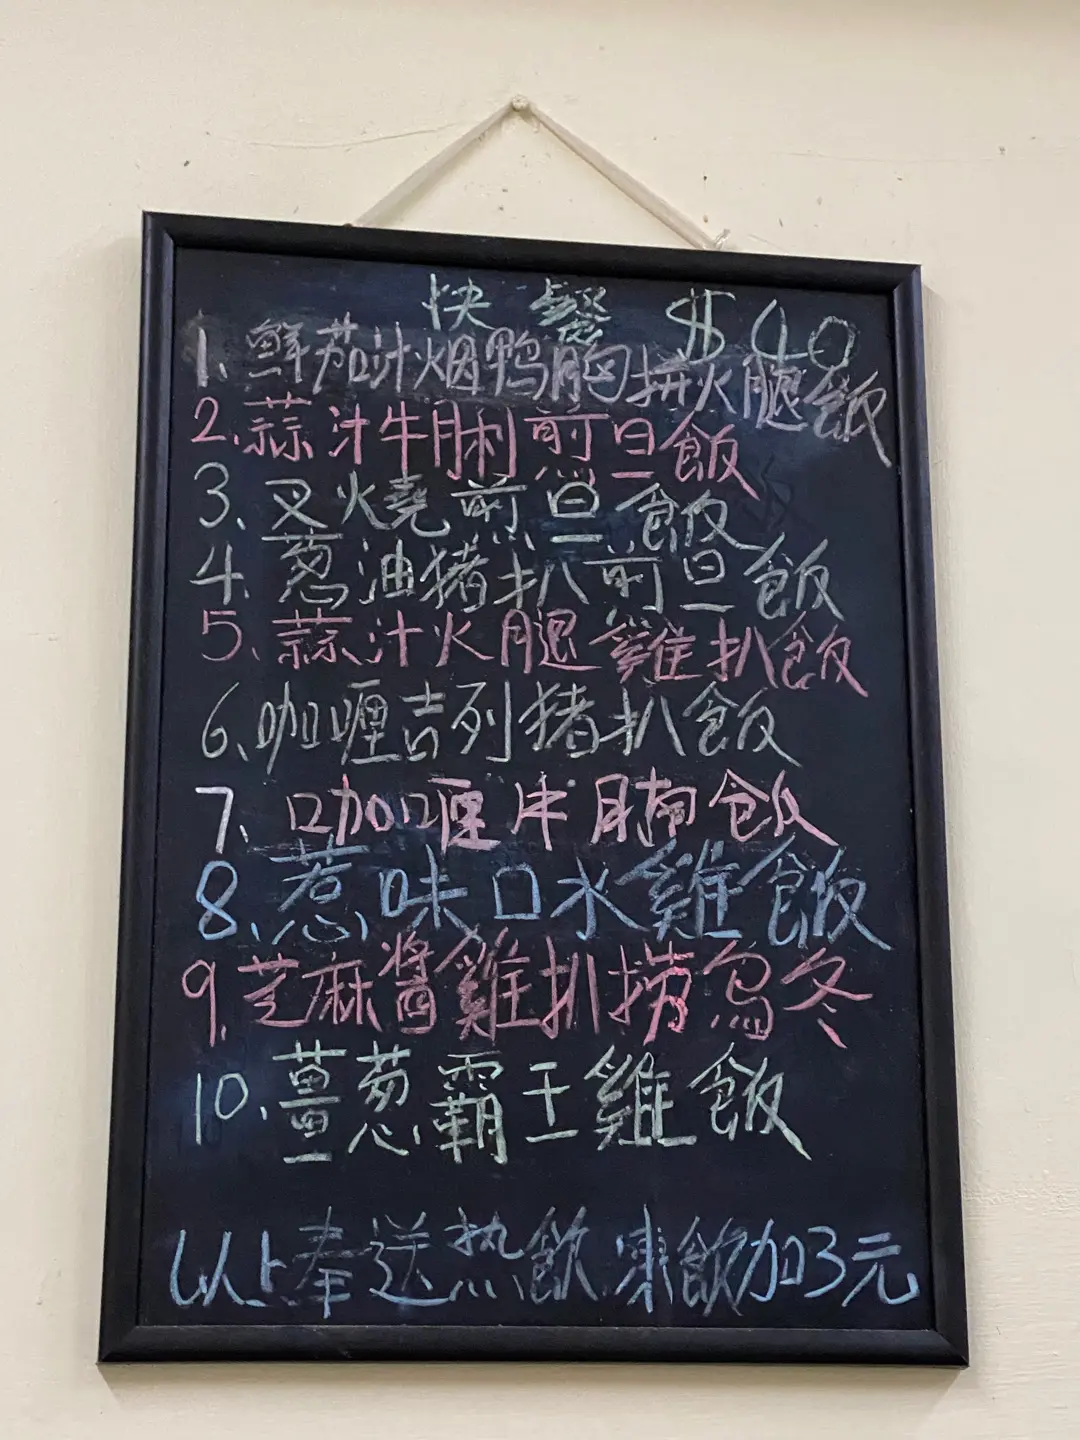 快餐 $40
1. 鲜茄汁烟鸭胸拼火腿飯
2. 蒜汁牛脷煎旦飯
3. 叉火燒煎旦飯
4. 葱油猪扒煎旦飯
5. 蒜汁火腿雞扒飯
6. 咖喱吉列猪扒飯
7. 咖喱牛腩飯
8. 惹味口水雞飯
9. 芝麻醬雞扒捞烏冬
10. 薑葱霸王雞飯
以上奉送热飲 凍飲加3元